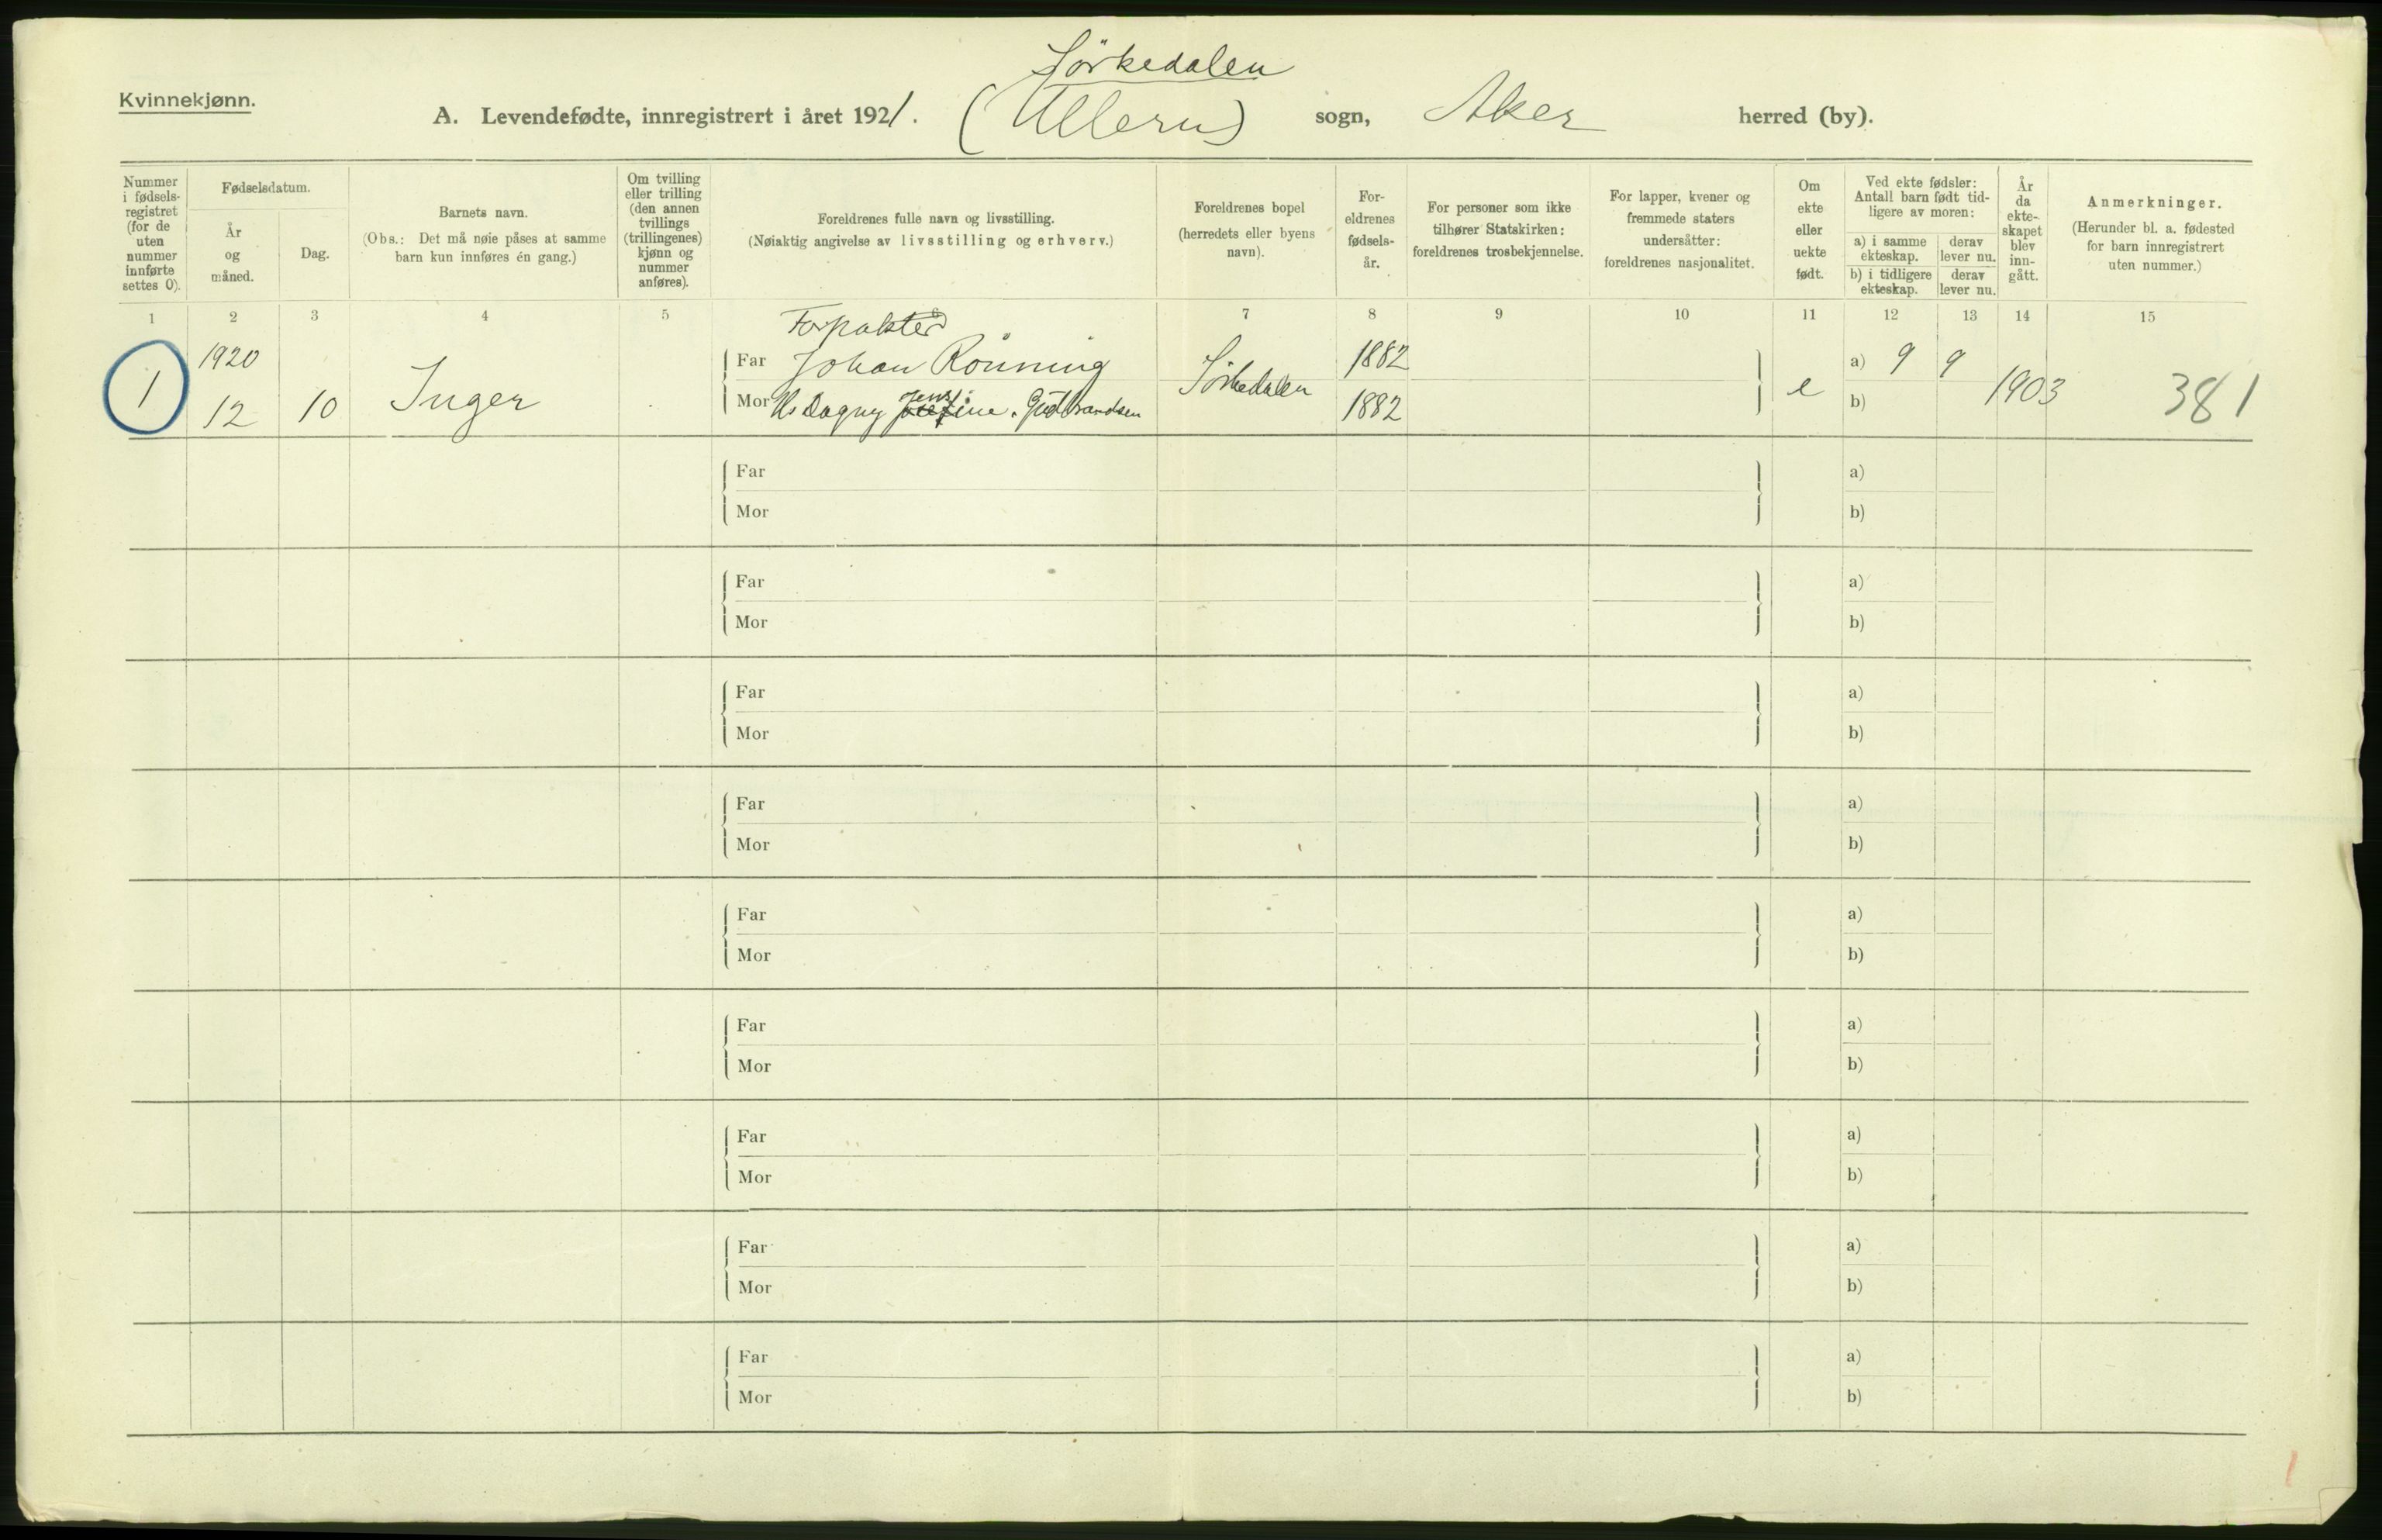 Kvinnekjønn.
Sörkedalen
A. Levendefødte, innregistrert i året 1921. (Ullern) sogn, Aker herred (by).
Nummer i fødsels-registret (for de uten nummer innførte settes 0).
Fødselsdatum.
År og måned.
Dag.
Barnets navn.
(Obs.: Det må nøie påses at samme barn kun innføres én gang.)
Om tvilling eller trilling (den annen tvillings (trillingenes) kjønn og nummer anføres).
Foreldrenes fulle navn og livsstilling.
(Nøiaktig angivelse av livsstilling og erhverv.)
Foreldrenes bopel (herredets eller byens navn).
For-eldrenes fødsels-år.
For personer som ikke tilhører Statskirken: foreldrenes trosbekjennelse.
For lapper, kvener og fremmede staters undersåtter: foreldrenes nasjonalitet.
Om ekte eller uekte født.
Ved ekte fødsler: Antall barn født tid-ligere av moren:
a) i samme ekteskap.
derav lever nu.
b) i tidligere ekteskap.
derav lever nu.
År da ekte-skapet blev inn-gått.
Anmerkninger.
(Herunder bl. a. fødested for barn innregistrert uten nummer.)
1 2 3 4 5 6 7 8 9 10 11 12 13 14 15
Forpakter
1 1920 Far Johan Rönning 1882 a) 9 9
12 10 Inger Mor Hs Dagny Jensine. Gudbrandsen Sörkedalen 1882 e b) 1903 381
Far a)
Mor b)
Far a)
Mor b)
Far a)
Mor b)
Far a)
Mor b)
Far a)
Mor b)
Far a)
Mor b)
Far a)
Mor b)
Far a)
Mor b)
Far a)
Mor b)
1